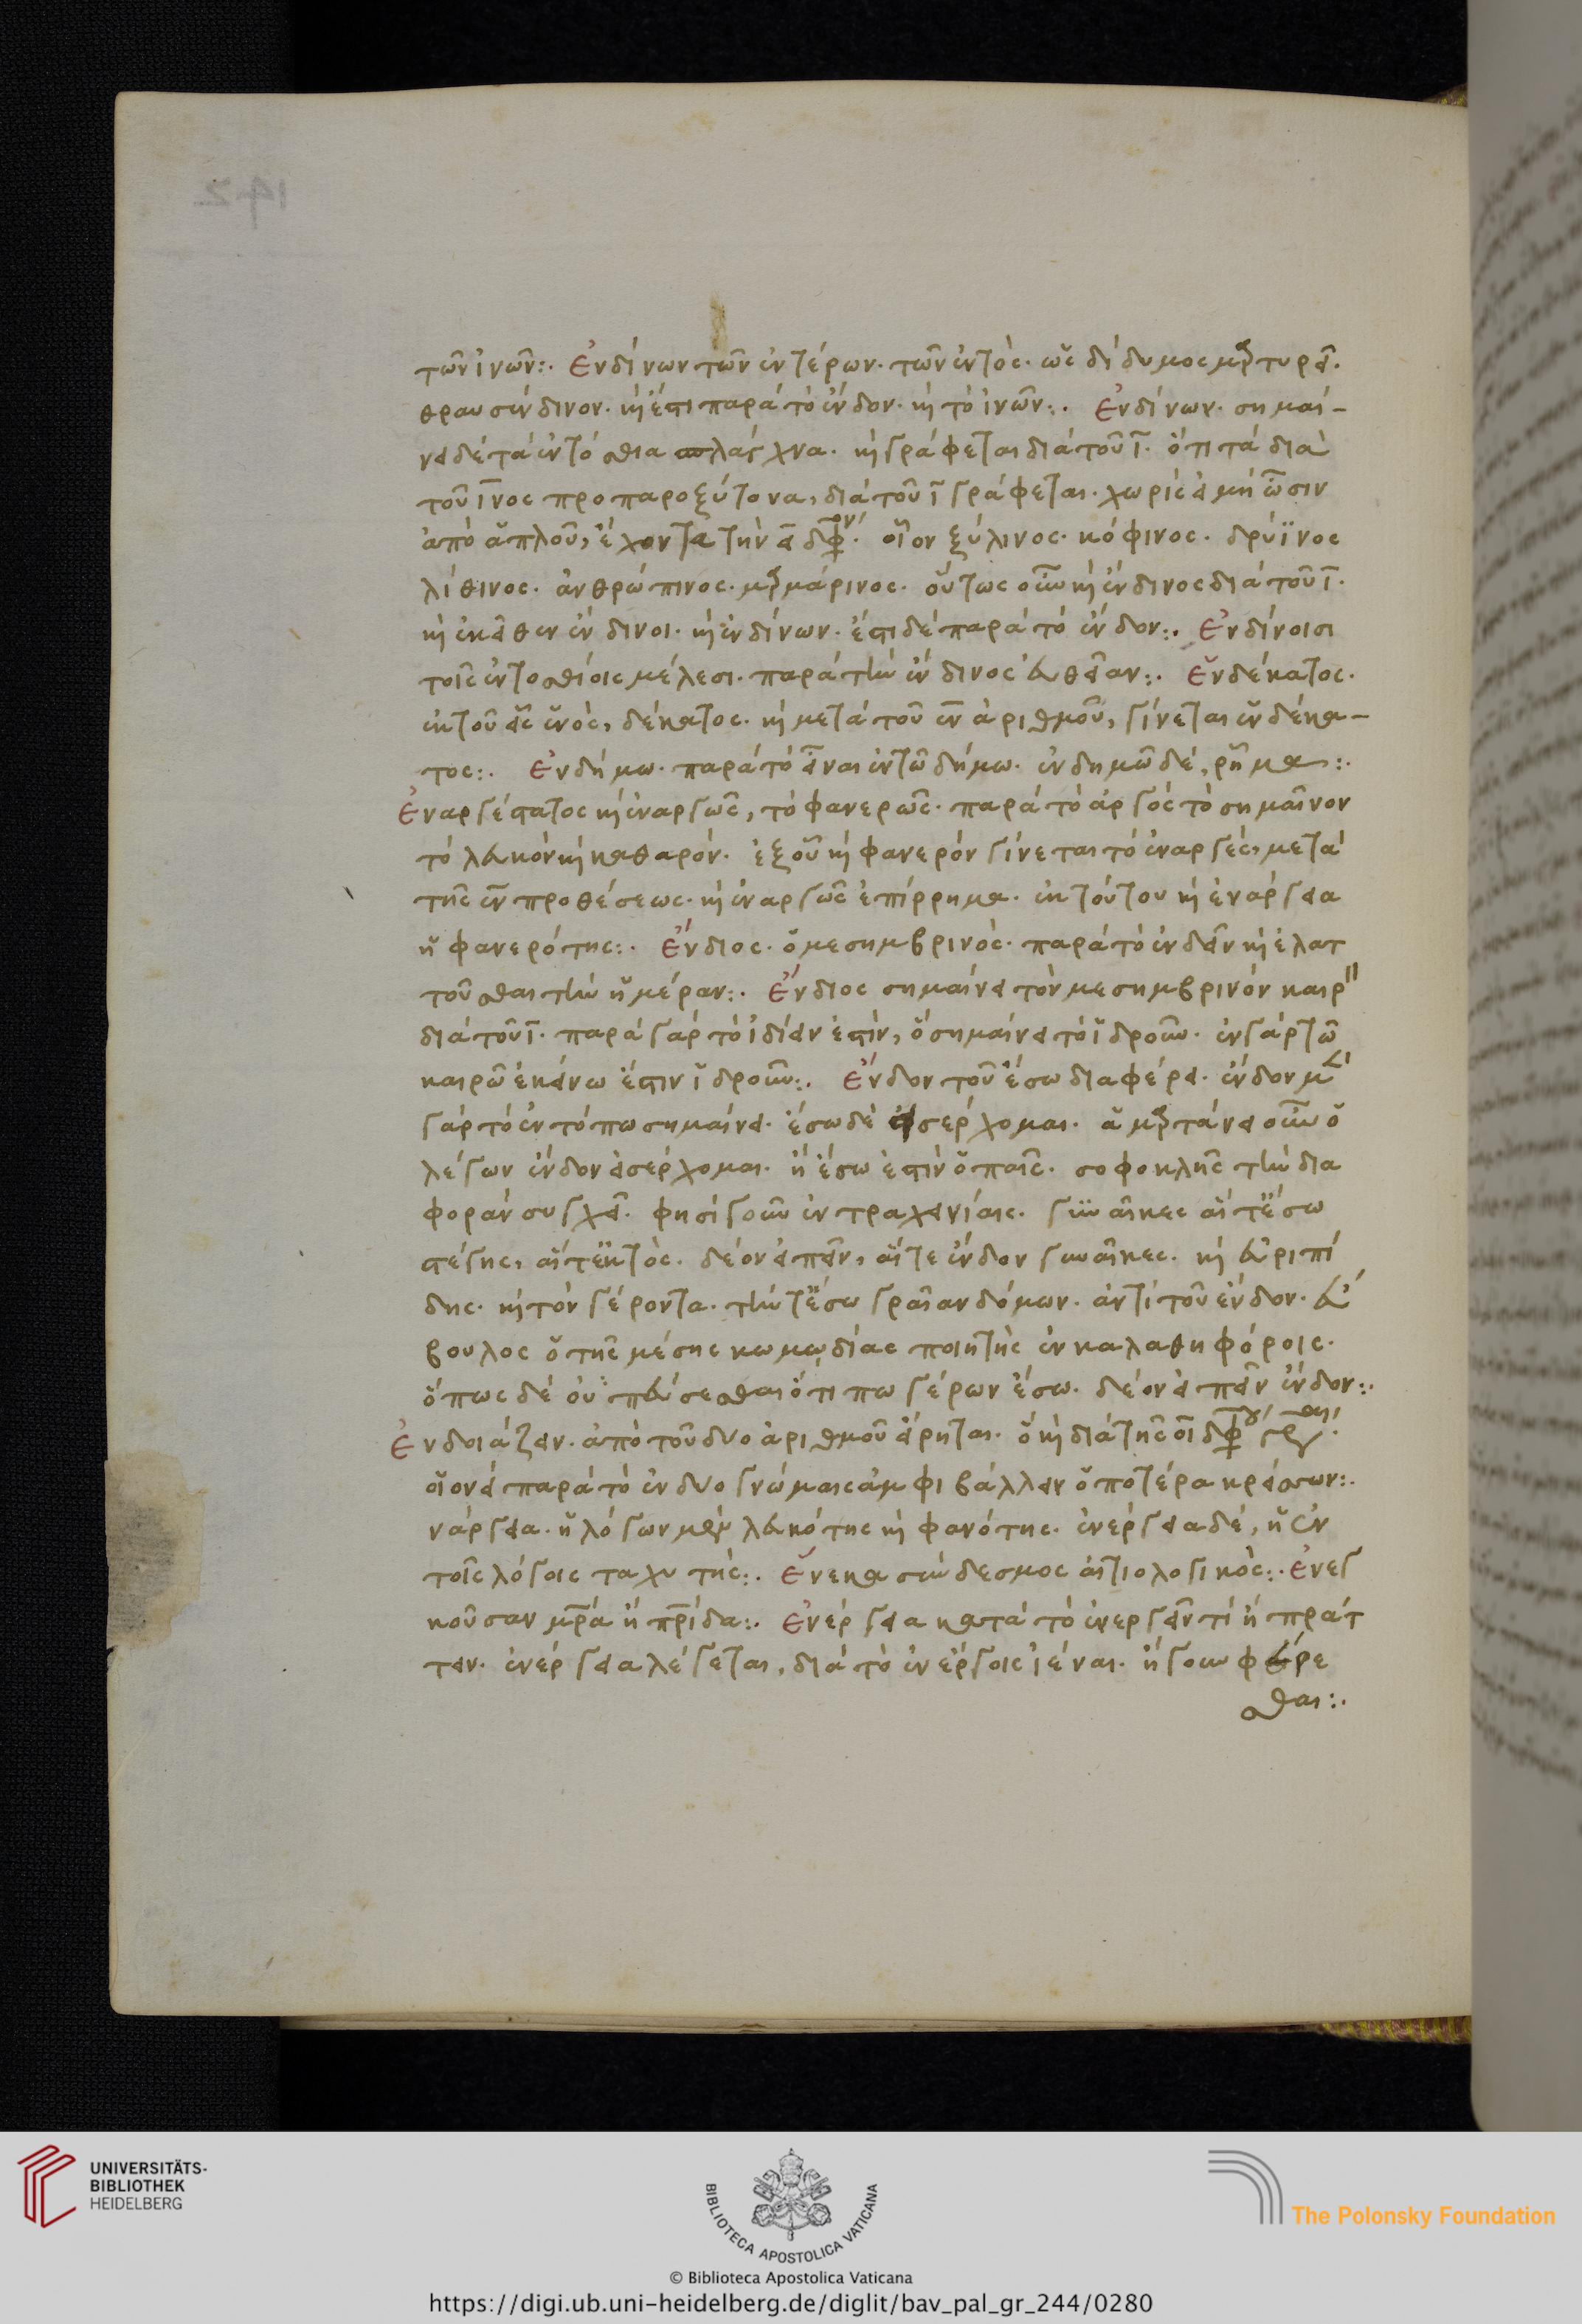 τῶν ἰνῶν:. Ἐνδίνων τῶν ἐντέρων. τῶν ἐντὸς. ὡς δίδυμος μαρτυρεῖ.
θραυσιν δινον. καὶ ἔστι παρὰ τὸ ἔνδον. καὶ τὸ ἰνῶν:. Ἐνδίνων. σημαί-
νει δὲ τὰ ἐντόσθια σπλάγχνα. καὶ γράφεται διὰ τοῦ ῑ. ὅτι τὰ διὰ
τοῦ ῑνος προπαροξύτονα, διὰ τοῦ ῑ γράφεται. χωρὶς εἰ μὴ ὦσιν
ἀπὸ ἁπλοῦ, ἔχοντα τὴν ει δίφθογγον. οἷον ξύλινος. κόφινος. δρύϊνος
λίθινος. ἀνθρώπινος. μαρμάρινος. οὕτως οὖν καὶ ἔνδινος διὰ τοῦ ῑ.
καὶ ἐκεῖθεν ἔνδινοι. καὶ ἐνδίνων. ἔστι δὲ παρὰ τὸ ἔνδον:. Ἐνδίνοισι
τοῖς ἐντοσθίοις μέλεσι. παρὰ τὴν ἔνδινος εὐθεῖαν:. Ἑνδέκατος.
ἐκ τοῦ εἷς ἑνὸς, δέκατος. καὶ μετὰ τοῦ ἓν ἀριθμοῦ, γίνεται ἑνδέκα-
τος:. Ἐνδήμω. παρὰ τὸ εἶναι ἐν τῶ δήμω. ἐνδημῶ δέ, ῥῆμα:.
Ἐναργέστατος καὶ ἐναργῶς, τὸ φανερῶς. παρὰ τὸ ἀργός τὸ σημαῖνον
τὸ λευκὸν καὶ καθαρόν. ἐξ οὗ καὶ φανερὸν γίνεται τὸ ἐναργές, μετὰ
τῆς ἐν προθέσεως. καὶ ἐναργῶς ἐπίρρημα. ἐκ τούτου καὶ ἐνάργεια
ἡ φανερότης:. Ἔνδιος. ὁ μεσημβρινὸς. παρὰ τὸ ἐνδεῖν καὶ ἐλατ
τοῦσθαι τὴν ἡμέραν:. Ἔνδιος σημαίνει τὸν μεσημβρινὸν καιρὸν
διὰ τοῦ ῑ. παρὰ γὰρ τὸ ἰδίειν ἐστὶν, ὃ σημαίνει τὸ ἱδροῦν. ἐν γὰρ τῶ
καιρῶ ἐκείνω ἔστιν ἱδροῦν:. Ἔνδον τοῦ ἔσω διαφέρει. ἔνδον μὲν
γὰρ τὸ ἐν τόπω σημαίνει. ἔσω δὲ εἰσέρχομαι. ἁμαρτάνει οὖν ὁ
λέγων ἔνδον εἰσέρχομαι. ἢ ἔσω ἐστὶν ὁ παῖς. σοφοκλῆς τὴν δια
φορὰν συγχεῖ. φησὶ γοῦν ἐν τραχινίαις. γυναῖκες αἵ τ' ἔσω
στέγης, αἵ τ' ἐκτὸς. δέον εἰπεῖν, αἵ τε ἔνδον γυναῖκες. καὶ εὐριπί
δης. καὶ τὸν γέροντα. τήν τ' ἔσω γραῖαν δόμων. ἀντὶ τοῦ ἔνδον. εὔ
βουλος ὁ τῆς μέσης κωμωδίας ποιητὴς ἐν καλαθηφόροις.
ὅπως δὲ οὐ πεύσεσθαι ὅτι πω γέρων ἔσω. δέον εἰπεῖν ἔνδον:.
Ἐνδοιάζειν. ἀπὸ τοῦ δυο ἀριθμοῦ εἴρηται. ὃ καὶ διὰ τῆς οῑ διφθόγγου γράφεται.
οἱονεὶ παρὰ τὸ ἐν δυο γνώμαις ἀμφιβάλλειν ὁποτέρα κρείσσων:.
νάργεια. ἡ λόγων μὲν λευκότης καὶ φανότης. ἐνέργεια δέ, ἡ ἐν
τοῖς λόγοις ταχυτής:. Ἕνεκα σύνδεσμος αἰτιολογικὸς:. Ἐνεγ
κοῦσαν μητέρα ἢ πατρίδα:. Ἐνέργεια κατὰ τὸ ἐνεργεῖν τί ἢ πράτ
τειν. ἐνέργεια λέγεται, διὰ τὸ ἐν ἔργοις ἰέναι. ἤγουν φέρε
σθαι:.
UNIVERSITÄTS-
BIBLIOTHEK
HEIDELBERG
BIBLIOTECA APOSTOLICA VATICANA
The Polonsky Foundation
© Biblioteca Apostolica Vaticana
https://digi.ub.uni-heidelberg.de/diglit/bav_pal_gr_244/0280